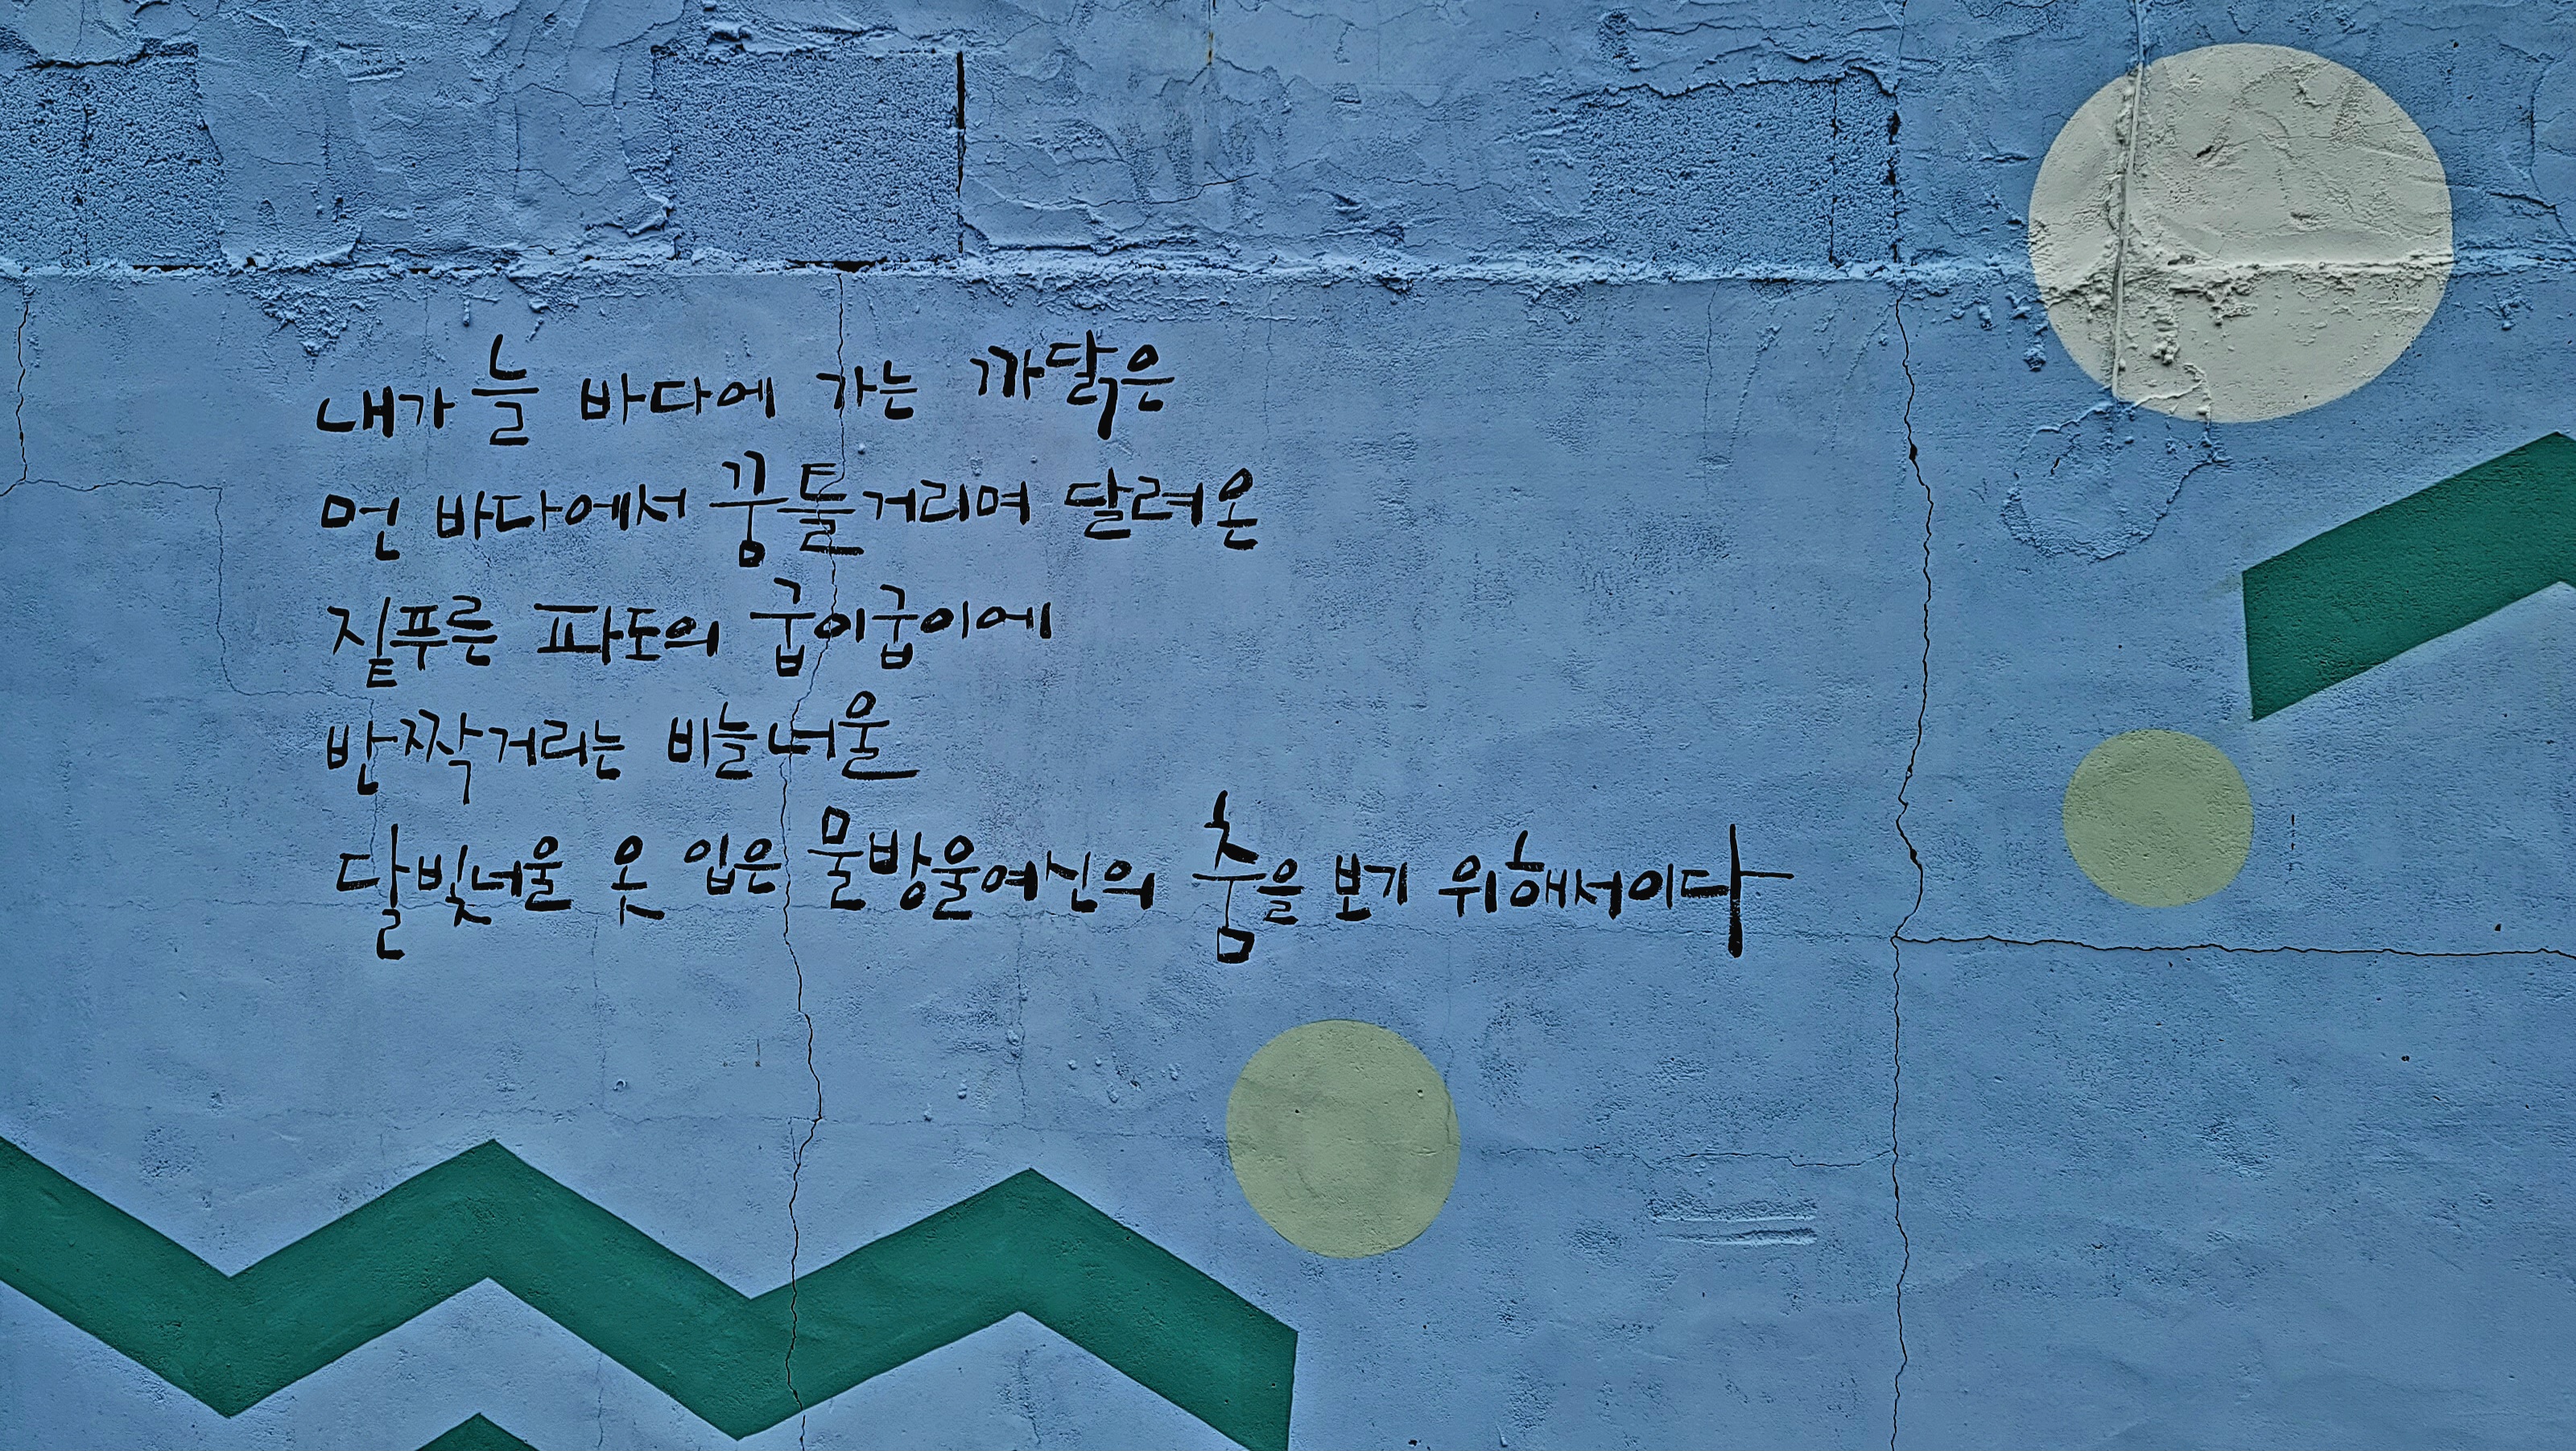 내가 늘 바다에 가는 까닭은
먼 바다에서 꿈틀거리며 달려온
짙푸른 파도의 굽이굽이에
반짝거리는 비늘너울
달빛너울 옷 입은 물방울여신의 춤을 보기 위해서이다